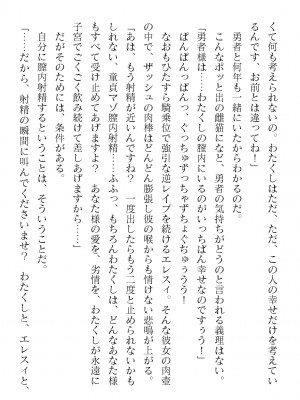 くて何も考えられないの。わたくしはただ、ただ、この人の幸せだけを考えてい
るんです、お前とは違ってね！」
勇者と何年も一緒にいたからわかるのだ。
こんなポッと出の雌猫になど、勇者の気持ちがどうのと言われる義理はない。
「勇者様は……わたくしの膣内にいるのがいっちばん幸せなのですぅう！」
ぱんぱんっぱんっ、ぐっちゅずっちゅちょぐちゅぅぅう！
なおもひたすら騎乗位で強引な逆レイプを続けるエレスィ。そんな彼女の肉壺
の中で、ザッシュの肉棒はどんどん膨張し彼の喉からも情けない悲鳴が上がる。
「あは、もう射精が近いんですね？　一度出したらもう二度と止められないかも
しれない、童貞マゾ膣内射精……ふふっ、もちろんわたくしは、どんなあなた様
もすべて受け止めてあげますよ？　あなた様の愛を、劣情を、わたくしが永遠に
子宮でごくごく飲み続けて差しあげますから……」
だがそのためには、条件がある。
自分に膣内射精するということは、そういうことだ。
「……だから、射精の瞬間に叫んでくださいませ？　わたくしと、エレスィと、